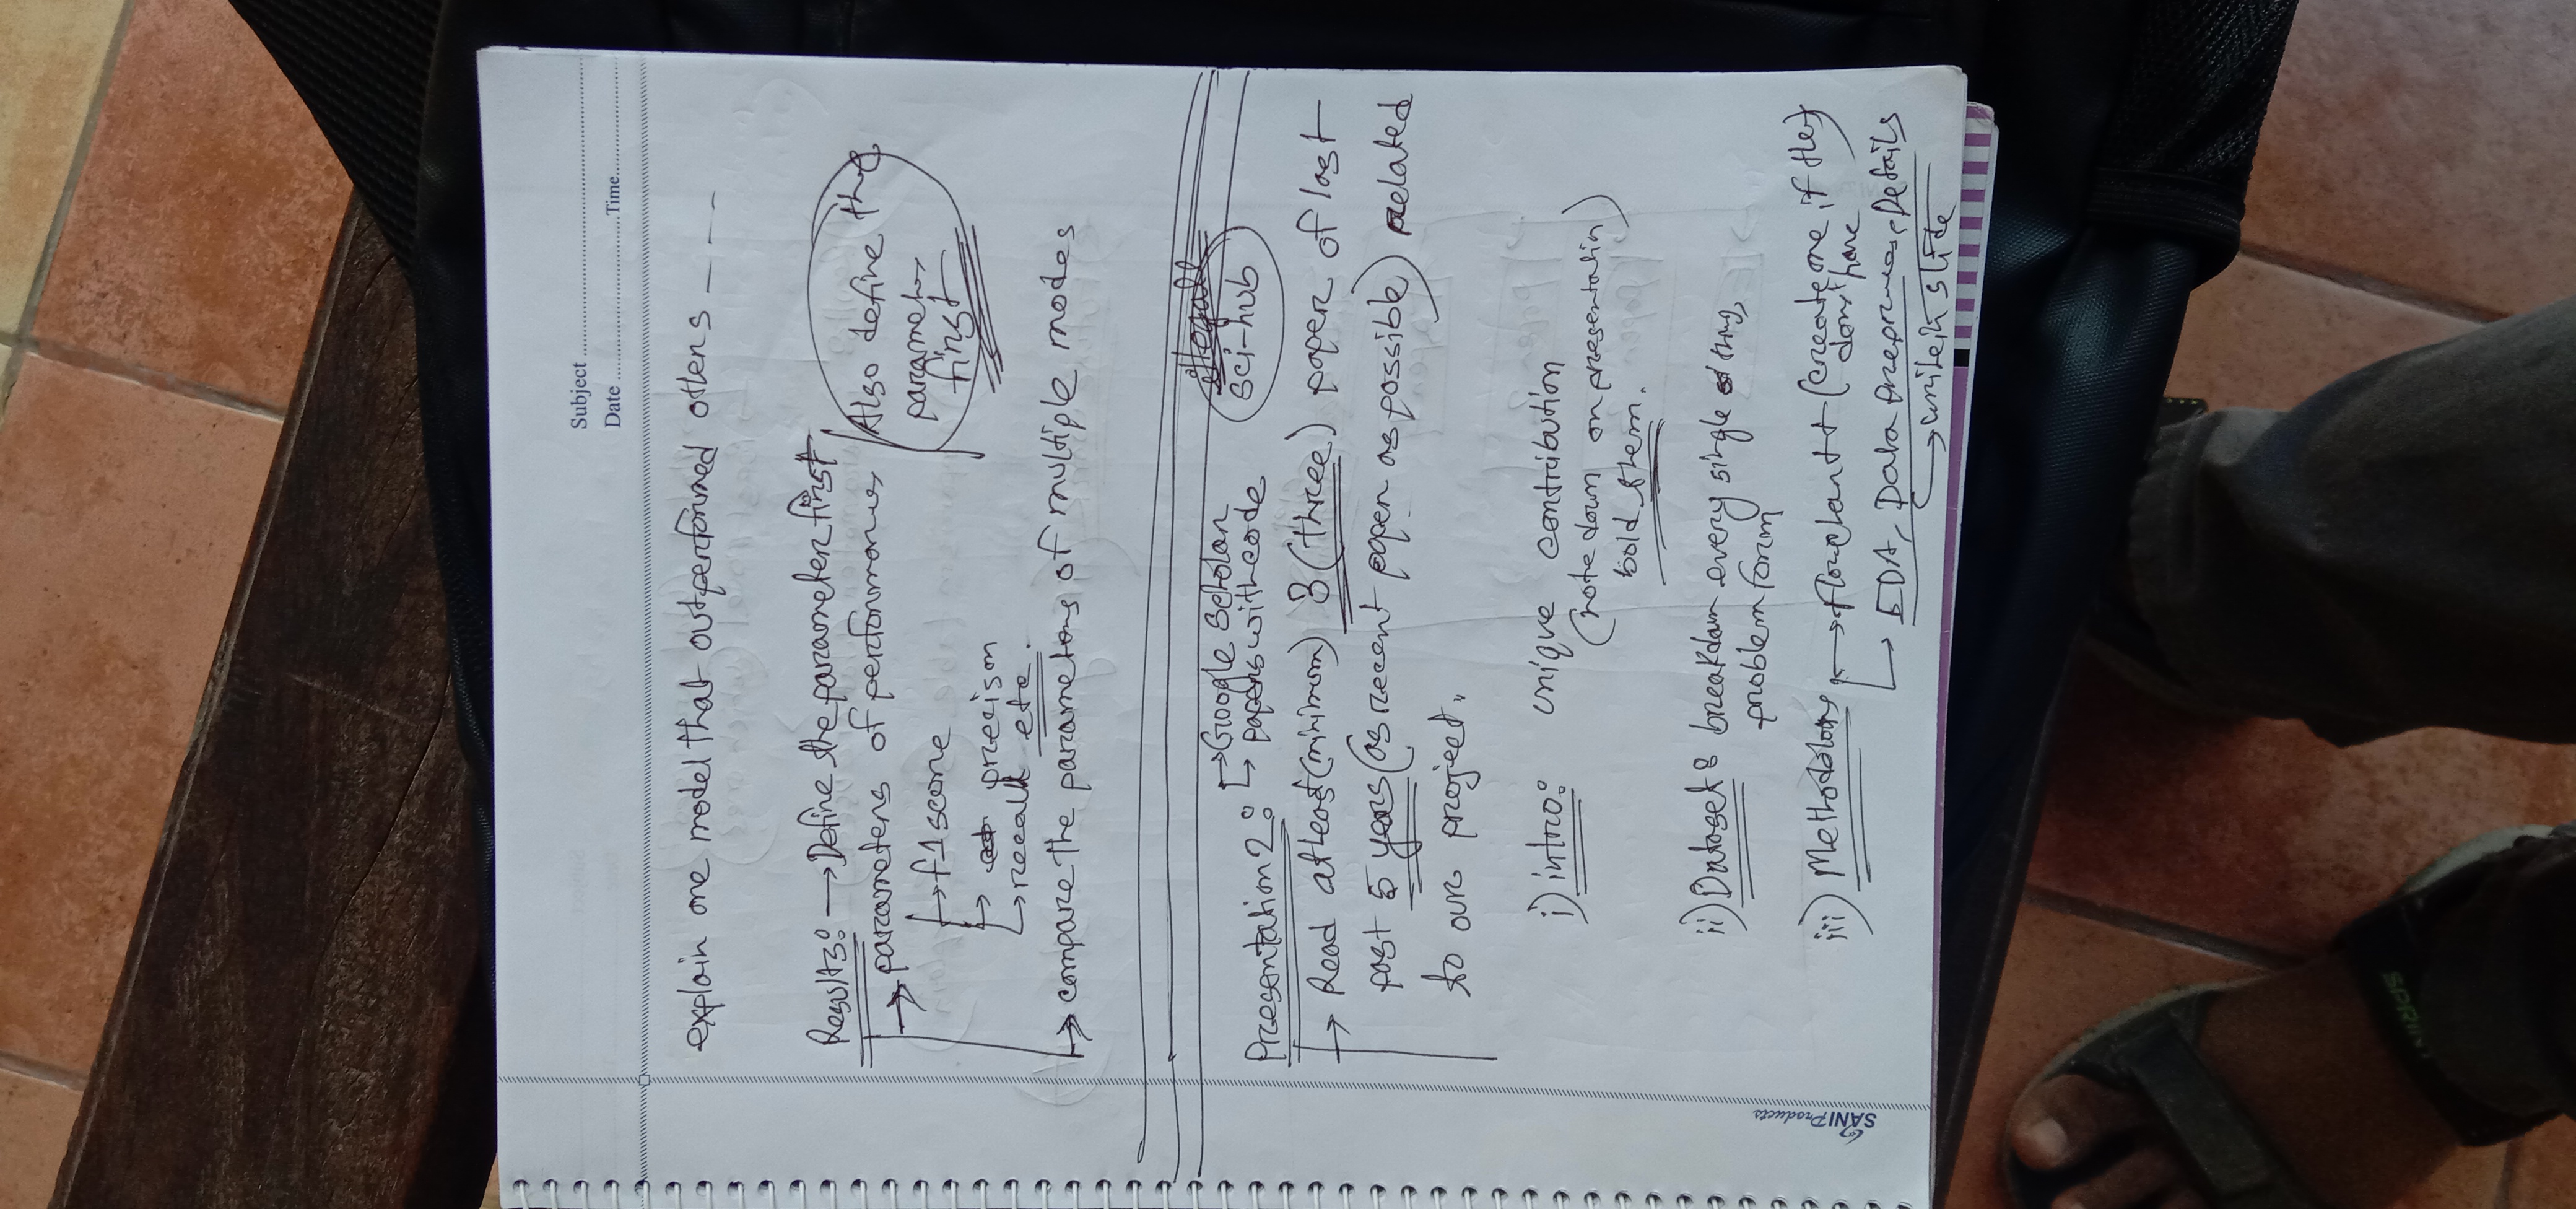 Subject
Date Time
explain one model that outperformed others ---
Results: → Define the parameter first
→ parameters of performances
→ f1 score
→ precison
→ recall etc.
Also define the
parameters
first
→ compare the parameters of multiple modes
illegall
sci-hub
→ Google Scholar
→ paperswithcode
Presentation 2:
→ Read atleast (minimum) 3 (three) paper of last
past 5 years (as recent paper as possible) related
to our project.
i) intro: unique contribution
(note down on presentatin)
bold them.
ii) Dataset: breakdown every single thing,
problem form
iii) Methodology → flowchart + (create one, if they
don't have
→ EDA, Data Preprocess, Details
→ write in slide
SANI Products
SPRINT